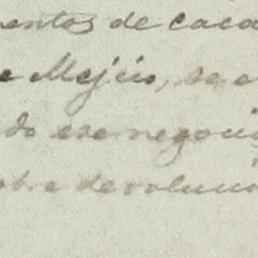 entos de caca
e Mejía, se e
do ese negoci
obre devoluci